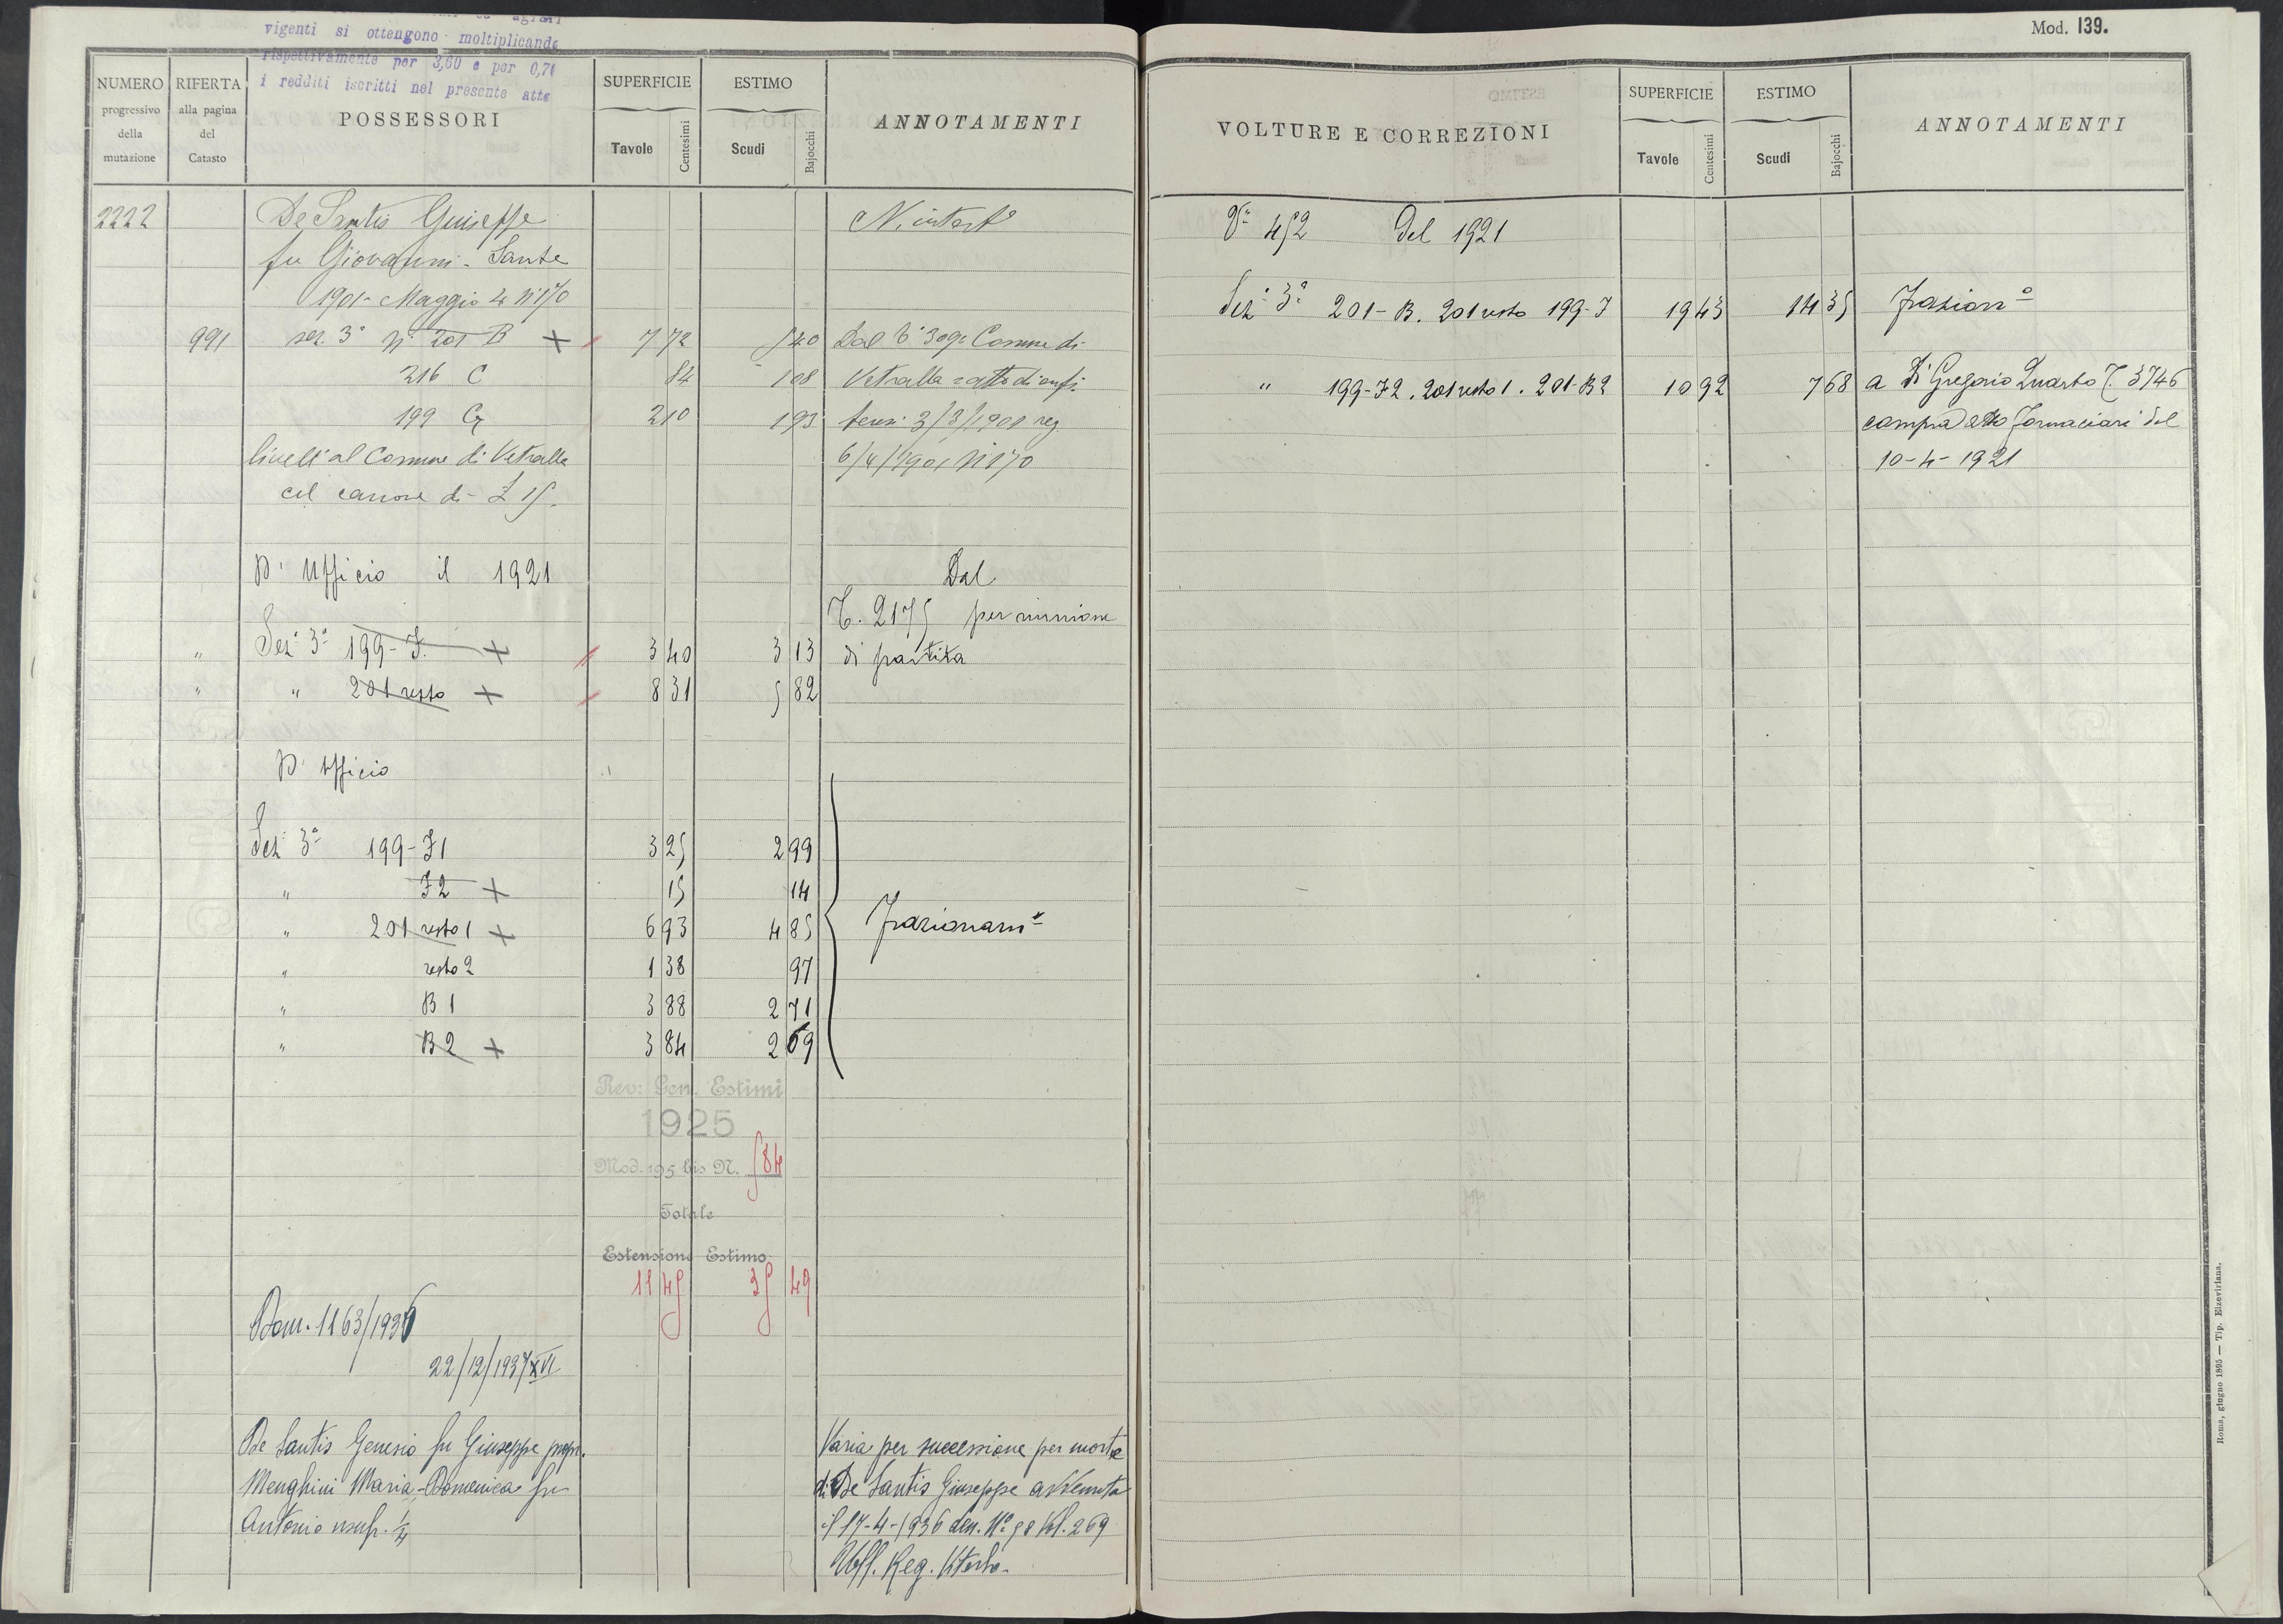 vigenti si ottengono moltiplicando
rispettivamente per 3,60 e per 0,71
i redditi iscritti nel presente atto
NUMERO progressivo della mutazione
RIFERTA alla pagina del Catasto
POSSESSORI
SUPERFICIE
Tavole Centesimi
ESTIMO
Scudi Bajocchi
ANNOTAMENTI
2222 De Santis Giuseppe N. intest°
fu Giovanni - Sante
1901 - Maggio 4 N° 170
991 sez. 3ª N° 201 B + 7 72 5 40 Dal T° 309 Comune di
216 C 84 108 Vetralla atto di enfi
199 G 2 10 1 93 teusi 3/3/1901 reg
livell° al Comune di Vetralla 6/4/1901 N 170
col canone di £ 15.
D' Ufficio il 1921 Dal
T. 2175 per riunione
" Sez. 3ª 199-I. + 3 40 3 13 di partita
" " 201 resto + 8 31 5 82
D' Ufficio
Sez 3ª 199-I1 3 25 2 99
" I2 + 15 14
" 201 resto 1 + 6 93 4 85 Frazionam°
" resto 2 1 38 97
" B 1 3 88 2 71
" B 2 + 3 84 2 69
Rev: Gen. Estimi
1925
Mod. 195 bis N. 584
Totale
Estensione Estimo
11 45 35 49
Dom. 1163/1936
22/12/1937 XVI
De Santis Genesio fu Giuseppe propr. Varia per successione per morte
Menghini Maria-Domenica fu di De Santis Giuseppe avvenuta
Antonio usuf. 1/4 il 17-4-1936 den. N° 98 Vol. 269
Uff. Reg. Viterbo.
Mod. 139.
VOLTURE E CORREZIONI
SUPERFICIE
Tavole Centesimi
ESTIMO
Scudi Bajocchi
ANNOTAMENTI
Vª 452 del 1921
Sez. 3ª 201-B. 201 resto 199-I 19 43 14 35 Frazion°
" 199-I2. 201 resto 1. 201-B2 10 92 7 68 a Di Gregorio Quarto T. 3746
compra atto Fornaciari del
10-4-1921
Roma, giugno 1895 — Tip. Elzeviriana.